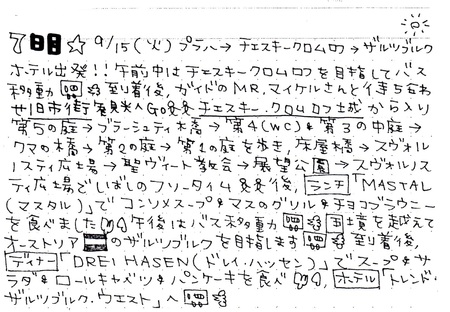 7日目☆ 9/15(火) プラハ→チェスキークロムロフ→ザルツブルク
ホテル出発!! 午前中はチェスキークロムロフを目指してバス
移動 到着後、ガイドのMR.マイケルさんと待ち合わ
せ!旧市街 へGO チェスキークロムロフ城から入り
第5の庭→プラーシュティ橋→第4(WC)&第3の中庭→
クマの橋→第2の庭→第1の庭を歩き、床屋橋→スヴォル
ノスティ広場→聖ヴィート教会→展望公園→スヴォルノス
ティ広場で のフリータイム 後、ランチ「MASTAL
(マスタル)」でコンソメスープ&マスのグリル&チョコブラウニー
を食べました 午後はバス移動 国境を越えて
オーストリア のザルツブルクを目指します 到着後、
ディナー「DREI HASEN(ドライ・ハッセン)」でスープ&サ
ラダ&ロールキャベツ&パンケーキを食べ 、ホテル「トレンド・
ザルツブルク・ウエスト」へ